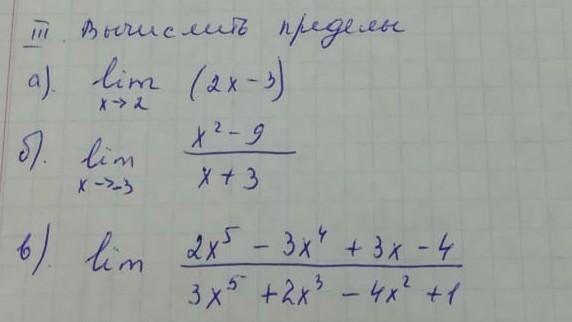 III. Вычислить пределы
а). lim x→2 (2x-3)
б). lim x→-3 (x² - 9)/(x + 3)
в). lim (2x⁵ - 3x⁴ + 3x - 4)/(3x⁵ + 2x³ - 4x² + 1)